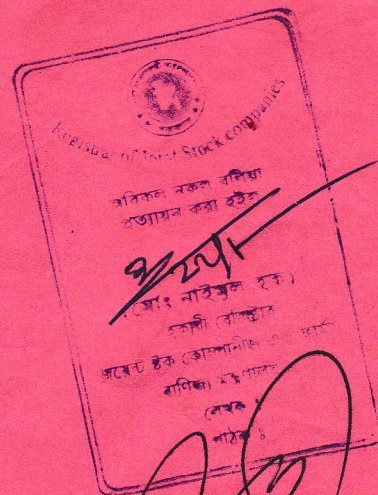 Registrar of Joint Stock Companies
অবিকল নকল বলিয়া
প্রত্যায়ন করা হইল
(মোঃ নাইমুল হক)
সহকারী রেজিস্ট্রার
জয়েন্ট স্টক কোম্পানীজ
বাণিজ্য মন্ত্রণালয়
লেখক :
পাঠক :